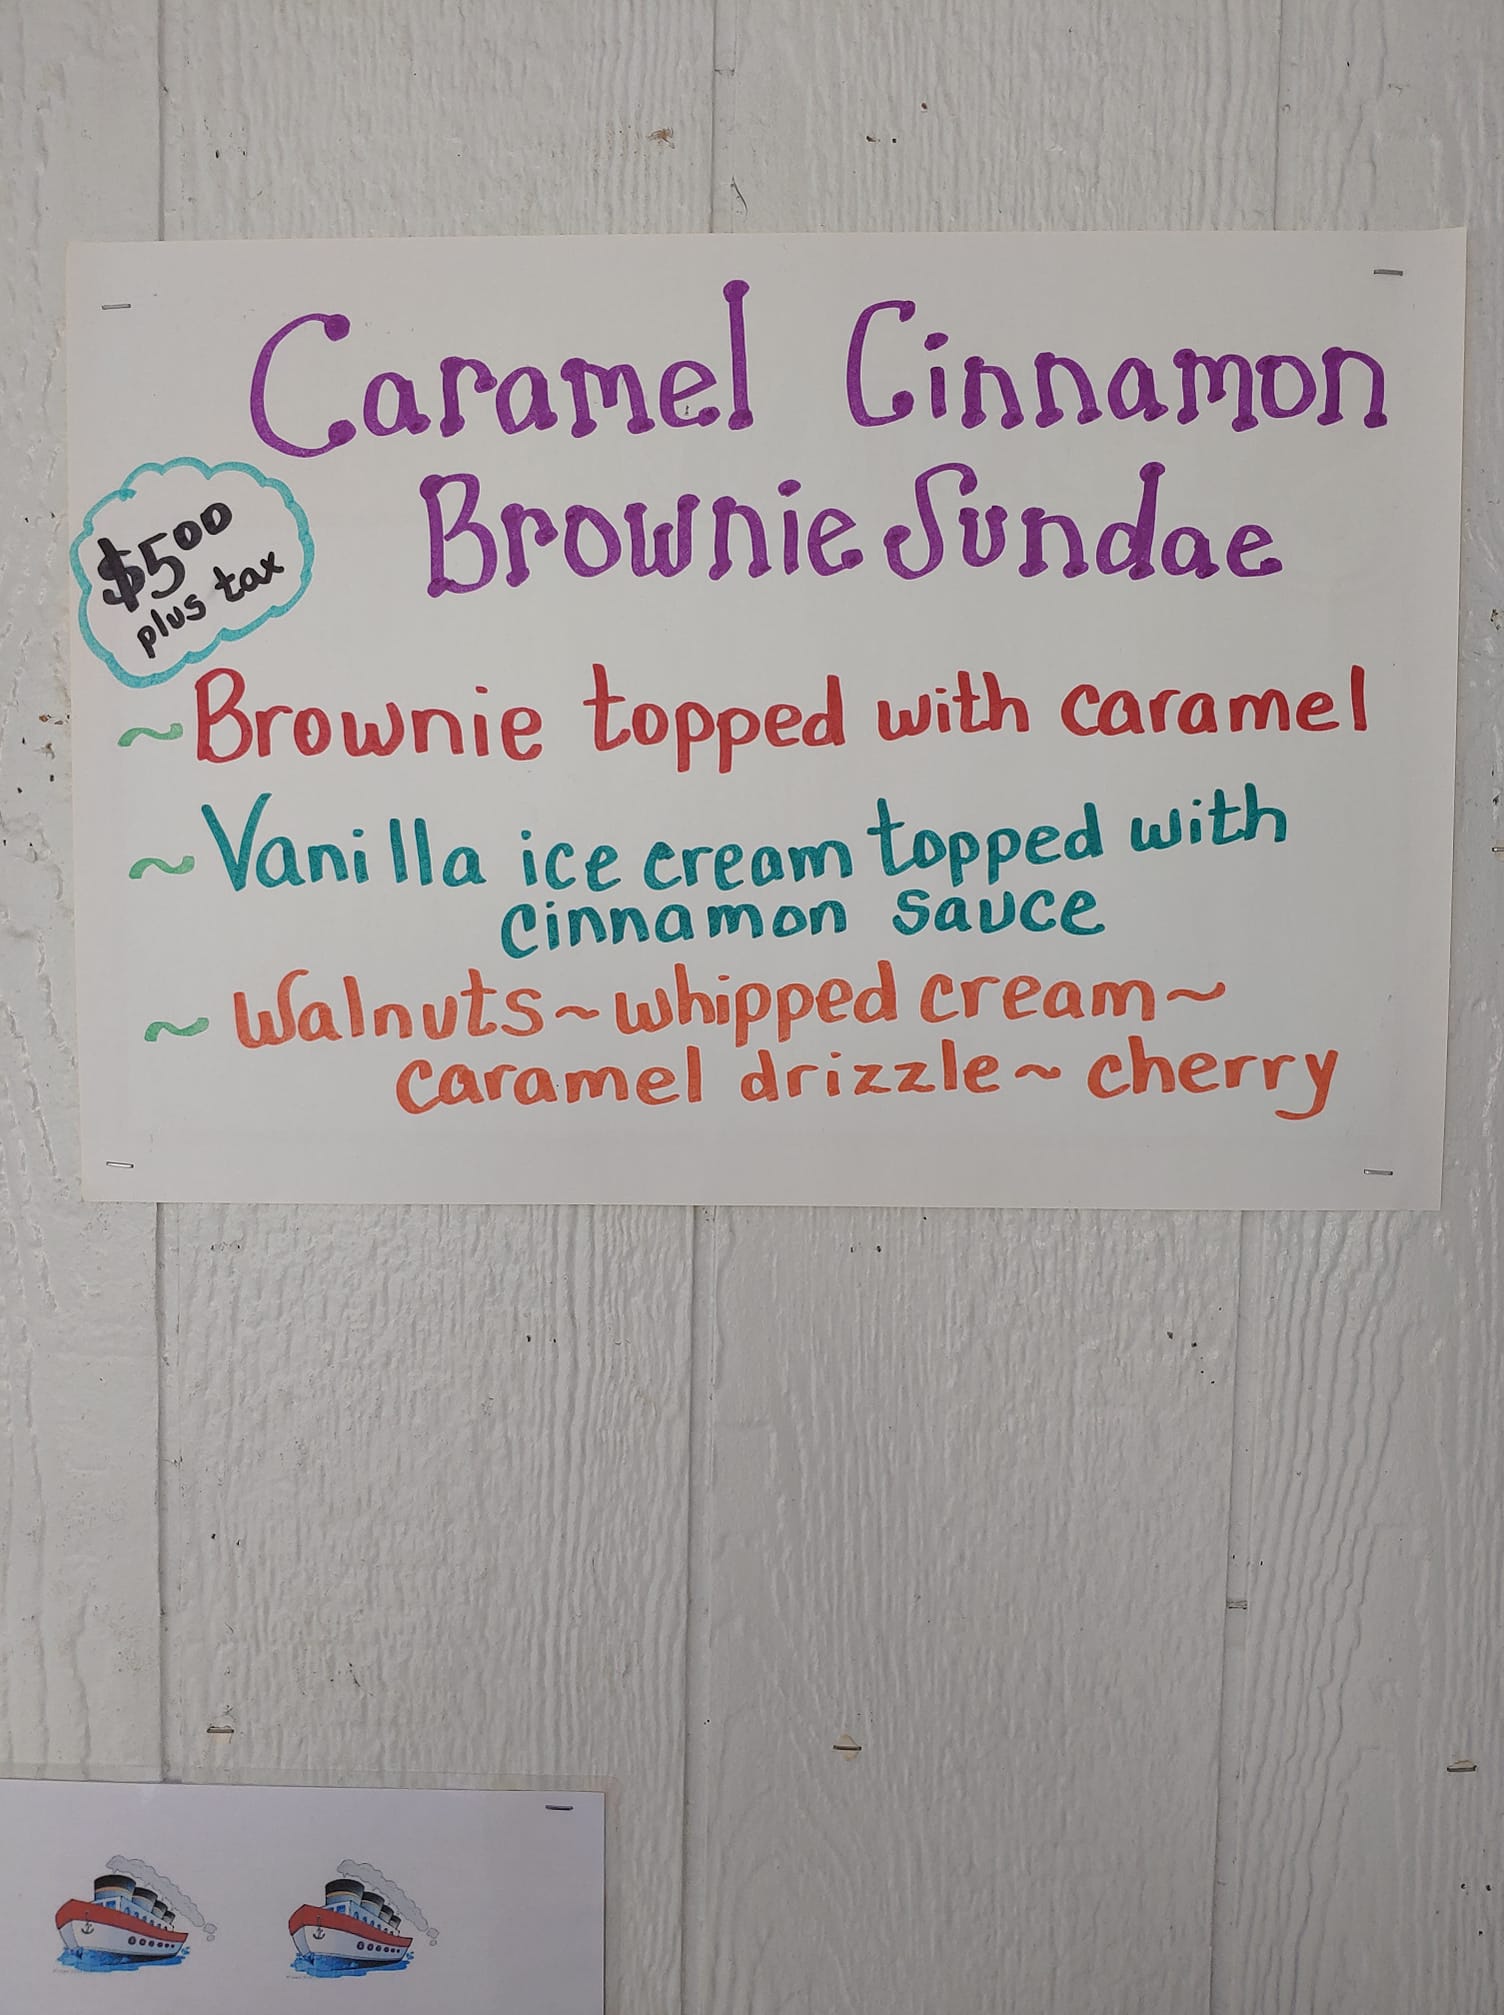 Caramel Cinnamon
Brownie Sundae
$5.00
plus tax
~Brownie topped with caramel
~Vanilla ice cream topped with
cinnamon sauce
~Walnuts~whipped cream~
caramel drizzle~cherry